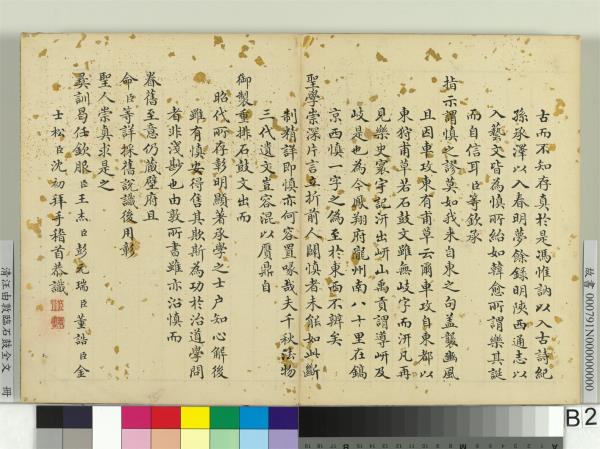 古而不知存真於是馮惟訥以入古詩紀
孫承澤以入春明夢餘錄明陝西通志以
入藝文皆為慎所紿如韓愈所謂樂其誕
而自信耳臣等欽承
指示謂慎之謬莫如我來自東之句蓋襲豳風
且因車攻東有甫草云爾車攻自東都以
東狩甫草若石鼓文雖無岐字而汧凡再
見樂史寰宇記汧出岍山禹貢謂導岍及
岐是也為今鳳翔府隴州南八十里在鎬
京西慎一字之偽至於東西不辨矣
聖學崇深片言立折前人闢慎者未能如此斷
制精詳即慎亦何容置喙哉夫千秋法物
三代遺文豈容混以贋鼎自
御製重排石鼓文出而
昭代所存彰明顯著承學之士户知心解後
雖有慎安得售其欺斯為功於治道學問
者非淺尠也由敦所書雖亦沿慎而
眷舊至意仍藏壁府且
命臣等詳採舊說識後用彰
聖人崇真求是之
彞訓曷任欽服臣王杰臣彭元瑞臣董誥臣金
士松臣沈初拜手稽首恭識
故書 000791N000000000
清汪由敦臨石鼓全文 冊
B2